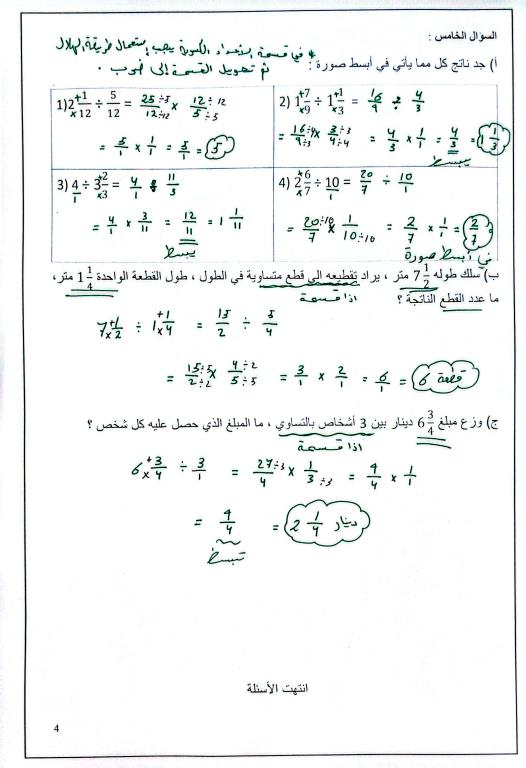 السؤال الخامس :
* في قسمة الأعداد الكسرية يجب إستعمال طريقة الهلال
ثم تحويل القسمة إلى ضرب .
أ) جد ناتج كل مما يأتي في أبسط صورة :
1) 2 1/12 ÷ 5/12 = 25/12 × 12/5
= 5/1 × 1/1 = 5/1 = 5
2) 1 7/9 ÷ 1 1/3 = 16/9 ÷ 4/3
= 16/9 × 3/4 = 4/3 × 1/1 = 4/3 = 1 1/3
يبسط
3) 4/1 ÷ 3 2/3 = 4/1 ÷ 11/3
= 4/1 × 3/11 = 12/11 = 1 1/11
يبسط
4) 2 6/7 ÷ 10/1 = 20/7 ÷ 10/1
= 20/7 × 1/10 = 2/7 × 1/1 = 2/7
في أبسط صورة
ب) سلك طوله 7 1/2 متر ، يراد تقطيعه إلى قطع متساوية في الطول ، طول القطعة الواحدة 1 1/4 متر،
اذا قسمة
ما عدد القطع الناتجة ؟
7 1/2 ÷ 1 1/4 = 15/2 ÷ 5/4
= 15/2 × 4/5 = 3/1 × 2/1 = 6/1 = 6 قطعة
ج) وزع مبلغ 6 3/4 دينار بين 3 أشخاص بالتساوي ، ما المبلغ الذي حصل عليه كل شخص ؟
اذا قسمة
6 3/4 ÷ 3/1 = 27/4 × 1/3 = 9/4 × 1/1
= 9/4 = 2 1/4 دينار
تبسط
انتهت الأسئلة
4